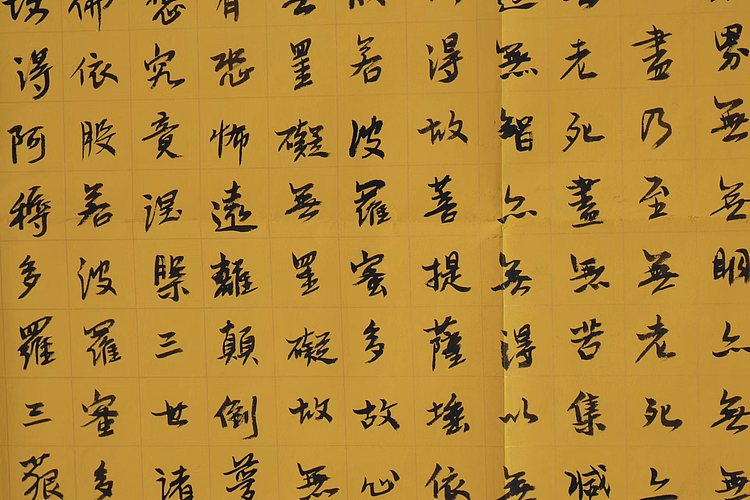 界無無明亦無無
盡乃至無老死亦
老死盡無苦集滅
無智亦無得以無
得故菩提薩埵依
若波羅蜜多故心
罣礙無罣礙故無
有恐怖遠離顛倒夢
究竟涅槃三世諸
佛依般若波羅蜜多
得阿耨多羅三藐